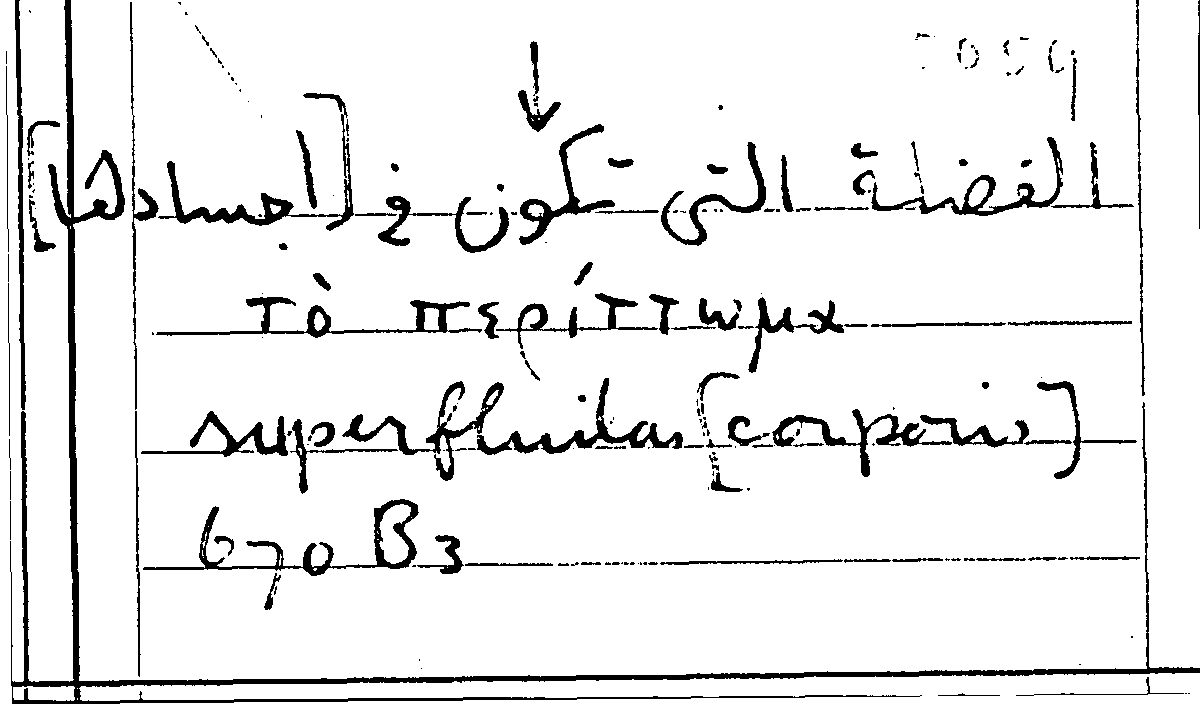 الفضلة التى تكون فى [اجسادها]
τὸ περίττωμα
superfluitas [corporis]
670 B3